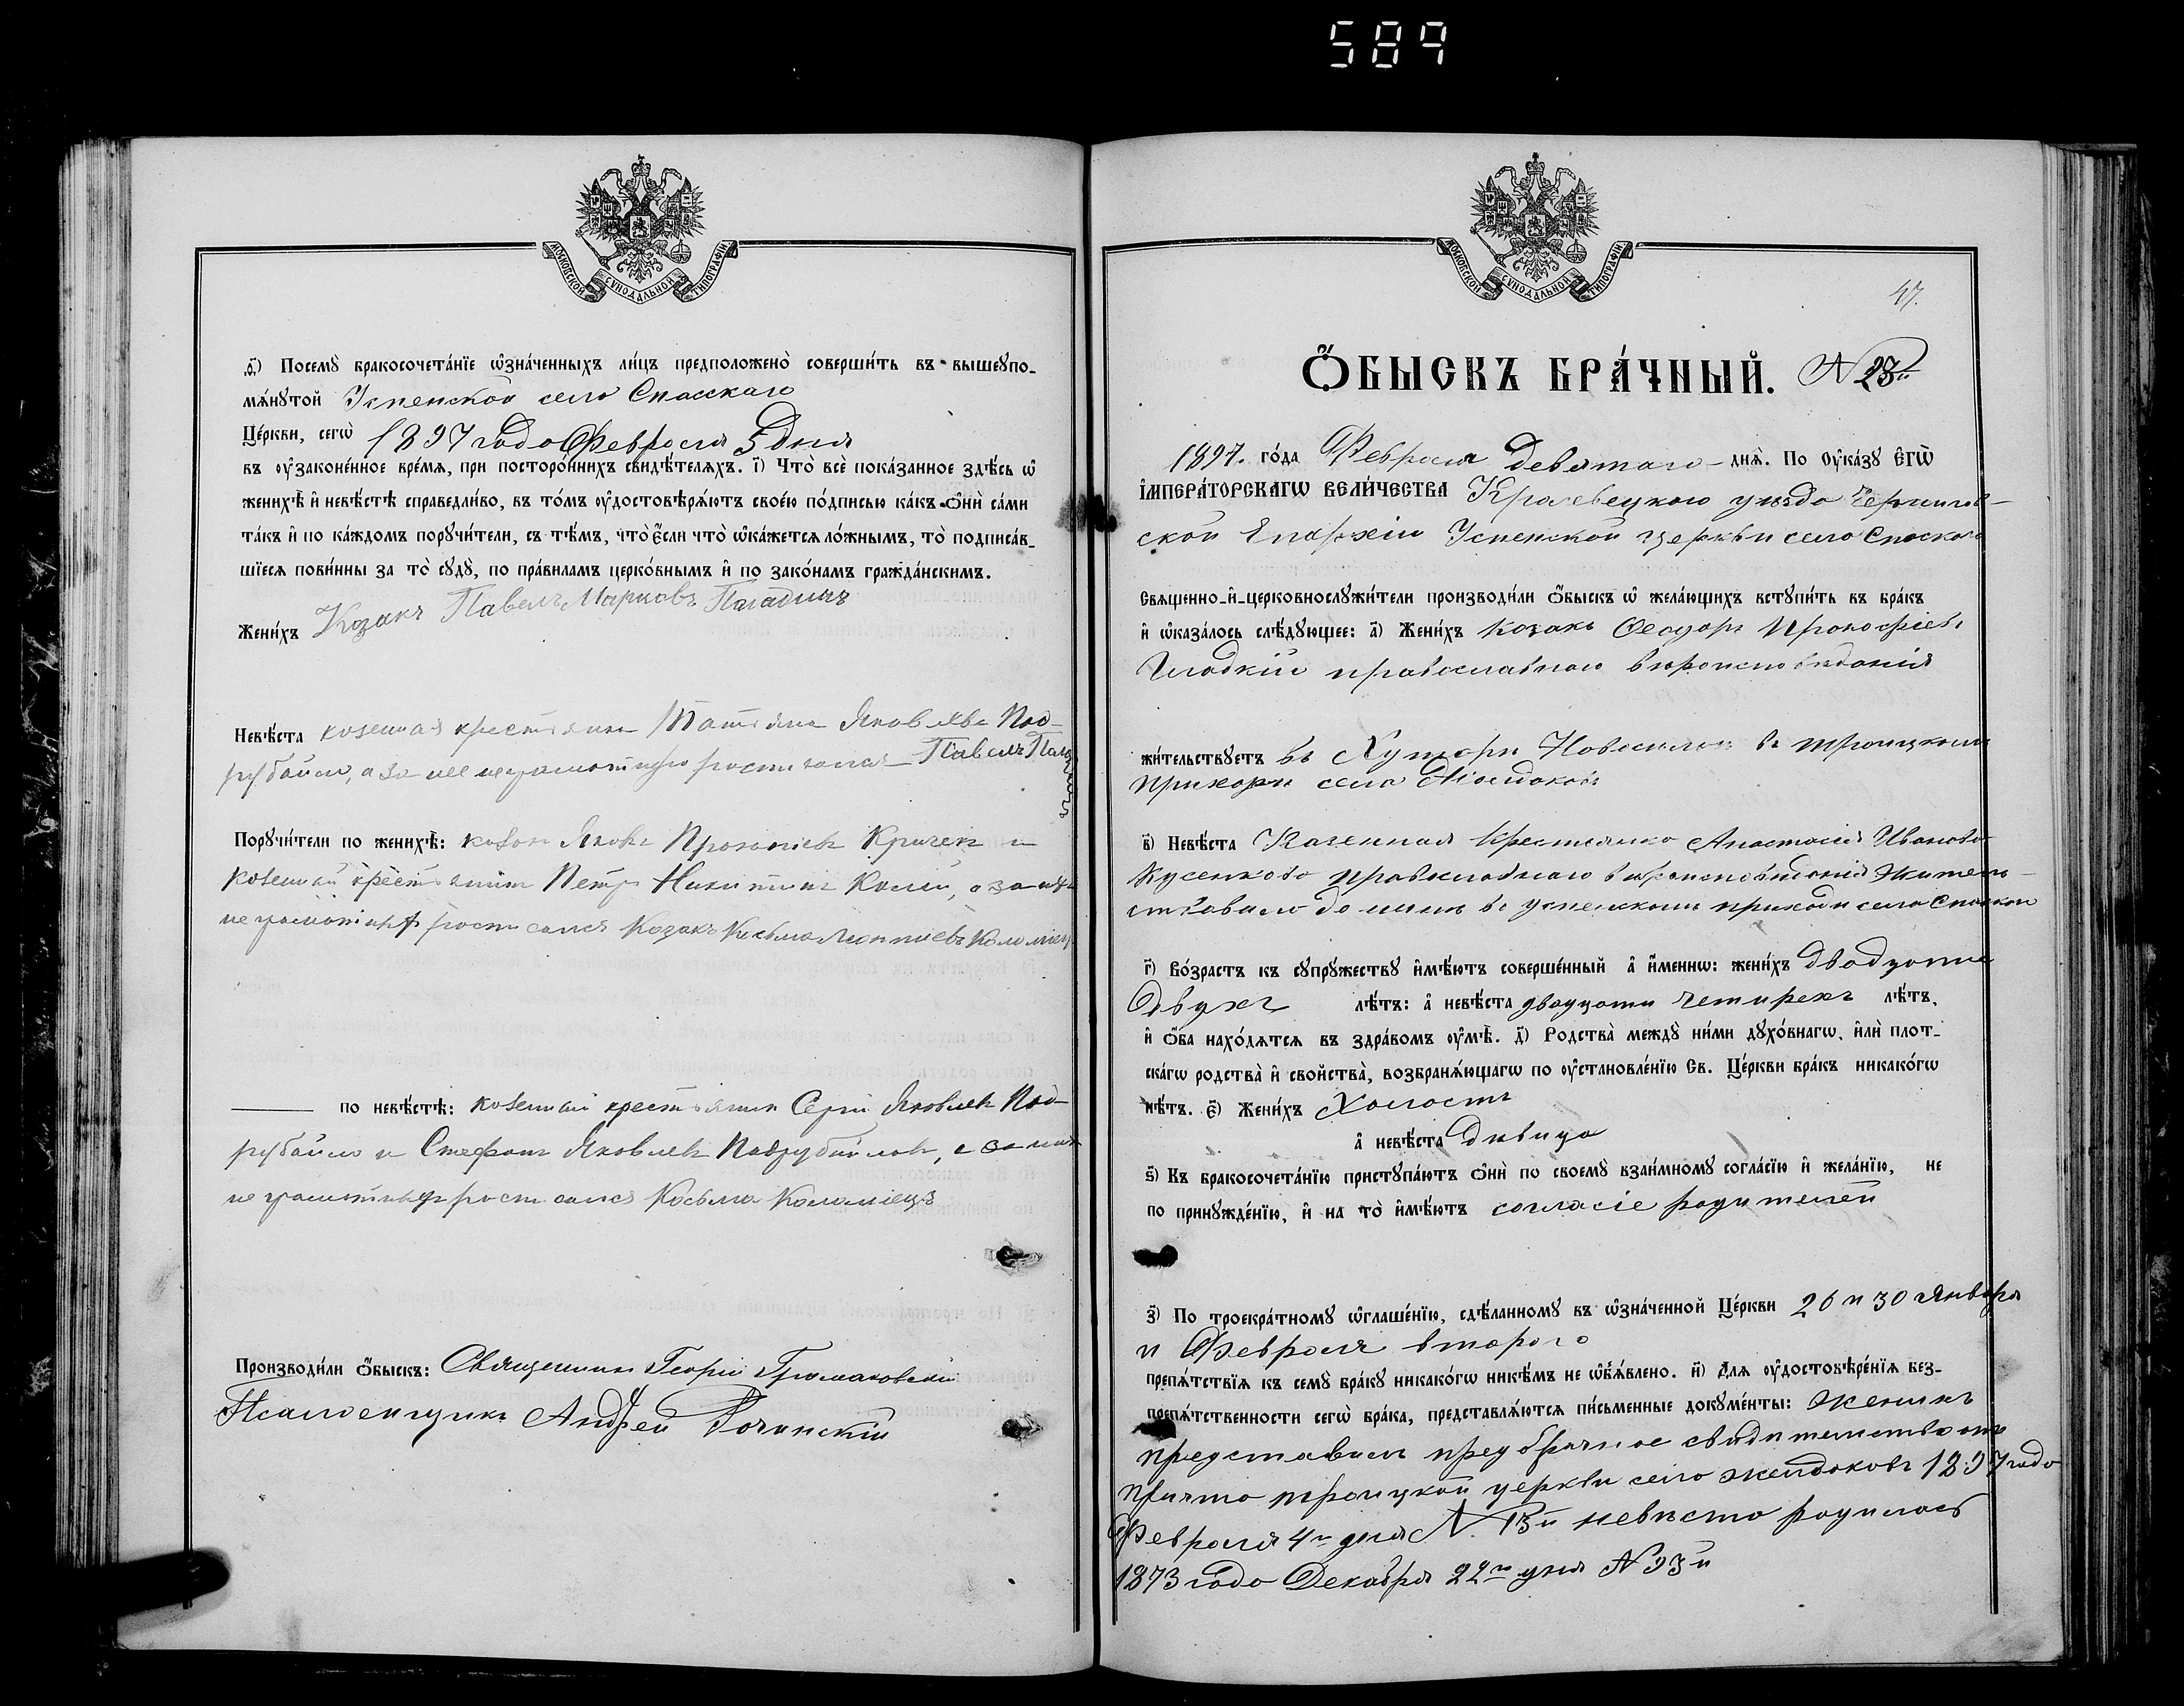 589
МОСКОВСКОЙ СѴНОДАЛЬНОЙ ТИПОГРАФІИ
ѳ҃) Посемꙋ̀ бракосочета́нїе ѡ҆зна́ченныхъ ли́цъ предположено̀ соверши́ть въ вышеꙋпо-
мѧ́нꙋтой Успенской села Спасскаго
Це́ркви, сегѡ̀ 1897 года Февраля 5 дня
въ ᲂу҆законе́нное вре́мѧ, при посторо́ннихъ свидѣ́телѧхъ. і҃) Что̀ всѐ пока́занное здѣ́сь ѡ҆
женихѣ̀ и҆ невѣ́стѣ справедли́во, въ то́мъ ᲂу҆достовѣрѧ́ютъ свое́ю по́дписью ка́къ ѻ҆нѝ са́ми
та́къ и҆ по ка́ждомъ порꙋчи́тели, съ тѣ́мъ, что̀ є҆́сли что̀ ѡ҆ка́жетсѧ ло́жнымъ, то̀ подписа́в-
шїесѧ пови́нны за то̀ сꙋдꙋ̀, по пра́виламъ церко́внымъ и҆ по зако́намъ гражда́нскимъ.
Жени́хъ Козакъ Павелъ Марковъ
Невѣ́ста козенная крестьянка Татьяна Яковлева Под-
рубайло, а за нее неграмотную росписался Павелъ
Порꙋчи́тели по женихѣ̀: козак Яковъ Прокопіевъ Кричек и
козенный крестьянинъ Петръ Никитинъ а за них
неграмотных росписался Козакъ Косьма Коломіецъ
по невѣ́стѣ: козенный крестьянин Сергій Яковлев Под-
рубайло и Стефанъ Яковлев Подрубайловъ, а за них
неграмотных росписался Косьма Коломіецъ
Производи́ли ѻ҆́быскъ: Священникъ Георгій Громаковскій
Псаломщикъ Андрей
МОСКОВСКОЙ СѴНОДАЛЬНОЙ ТИПОГРАФІИ
47.
Ѻ҆́БЫСКЪ БРА́ЧНЫЙ. N 23й
1897. го́да Февраля девятаго днѧ̀. По ᲂу҆ка́зꙋ є҆гѡ̀
і҆мпера́торскагѡ вели́чества Кролевецкаго уѣзда Чернигов-
ской Епархіи Успенской церкви села Спаскаго
Свѧщенно-и҆-церковнослꙋжи́тели производи́ли ѻ҆́быскъ ѡ҆ жела́ющихъ встꙋпи́ть въ бра́къ
и҆ ѡ҆каза́лось слѣ́дꙋющее: а҃) Жени́хъ козакъ Ѳеодоръ Прокофіевъ
Гладкій православнаго вѣроисповѣданія
жи́тельствꙋетъ въ Хуторѣ въ троицкомъ
приходѣ села Жолдаковъ
в҃) Невѣ́ста Казенная крестьянка Анастасія Иванова
Кусенкова православнаго вѣроисповѣданія жител-
ствовала до нынѣ въ успенскомъ приходѣ села Спаскаго
г҃) Во́зрастъ къ сꙋпрꙋ́жествꙋ и҆мѣ́ютъ соверше́нный а҆ и҆́меннѡ: жени́хъ двадцати
двухъ лѣ́тъ: а҆ невѣ́ста двадцати четирехъ лѣ́тъ,
и҆ ѻ҆́ба нахо́дѧтсѧ въ здра́вомъ ᲂу҆мѣ̀. д҃) Родства̀ междꙋ̀ ни́ми дꙋхо́внагѡ, и҆лѝ плот-
ска́гѡ родства̀ и҆ сво́йства̀, возбранѧ́ющагѡ по ᲂу҆становле́нїю Св. Це́ркви бра́къ никако́гѡ
нѣ́тъ. є҃) Жени́хъ Холостъ
а҆ невѣ́ста дѣвица
ѕ҃) Къ бракосочета́нїю пристꙋпа́ютъ ѻ҆нѝ по своемꙋ̀ взаи́мномꙋ согла́сїю и҆ жела́нїю, не
по принꙋжде́нїю, и҆ на то̀ и҆мѣ́ютъ согласіе родителей
з҃) По троекра́тномꙋ ѡ҆глаше́нїю, сдѣ́ланномꙋ въ ѡ҆зна́ченной Це́ркви 26 и 30 Января
и Февраля второго
препѧ́тствїѧ къ семꙋ̀ бра́кꙋ никако́гѡ никѣ́мъ не ѡ҆б̾ѧ́влено. и҃) Длѧ ᲂу҆достовѣре́нїѧ без-
препѧ́тственности сегѡ̀ бра́ка, представлѧ́ютсѧ пи́сьменные докꙋме́нты: женихъ
представилъ предбрачное свидѣтельство отъ
причта троицкой церкви села жолдаковъ 1897 года
Февраля 4го дня N. 13й невѣста родилась
1873 года Декабря 22го дня N 93й